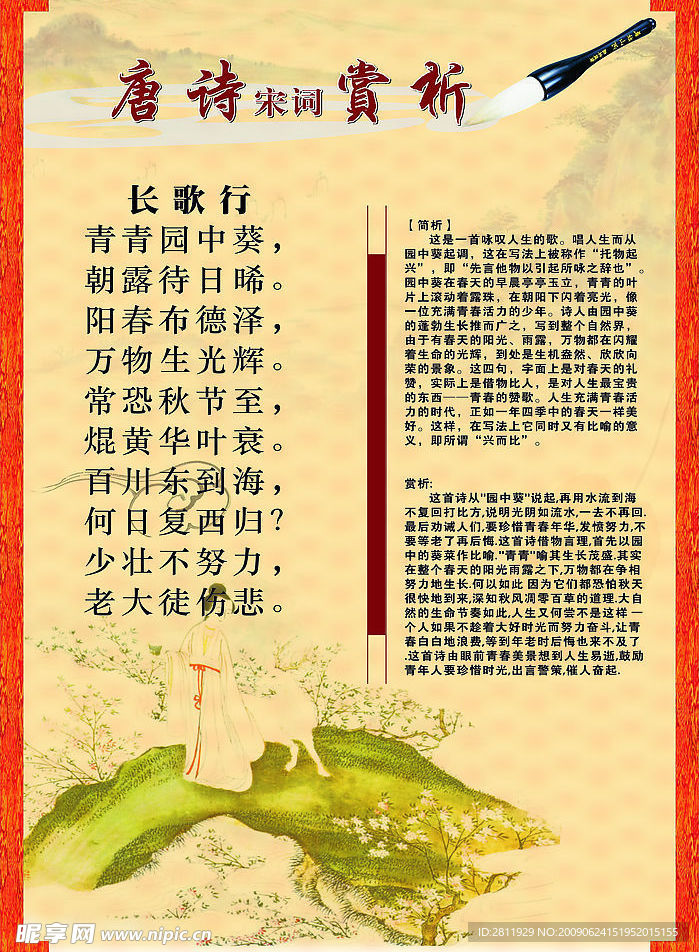 唐诗宋词赏析
长歌行
青青园中葵，
朝露待日晞。
阳春布德泽，
万物生光辉。
常恐秋节至，
焜黄华叶衰。
百川东到海，
何日复西归？
少壮不努力，
老大徒伤悲。
【简析】
这是一首咏叹人生的歌。唱人生而从
园中葵起调，这在写法上被称作“托物起
兴”，即“先言他物以引起所咏之辞也”。
园中葵在春天的早晨亭亭玉立，青青的叶
片上滚动着露珠，在朝阳下闪着亮光，像
一位充满青春活力的少年。诗人由园中葵
的蓬勃生长推而广之，写到整个自然界，
由于有春天的阳光、雨露，万物都在闪耀
着生命的光辉，到处是生机盎然、欣欣向
荣的景象。这四句，字面上是对春天的礼
赞，实际上是借物比人，是对人生最宝贵
的东西——青春的赞歌。人生充满青春活
力的时代，正如一年四季中的春天一样美
好。这样，在写法上它同时又有比喻的意
义，即所谓“兴而比”。
赏析:
这首诗从"园中葵"说起,再用水流到海
不复回打比方,说明光阴如流水,一去不再回.
最后劝诫人们,要珍惜青春年华,发愤努力,不
要等老了再后悔.这首诗借物言理,首先以园
中的葵菜作比喻."青青"喻其生长茂盛.其实
在整个春天的阳光雨露之下,万物都在争相
努力地生长.何以如此 因为它们都恐怕秋天
很快地到来,深知秋风凋零百草的道理.大自
然的生命节奏如此,人生又何尝不是这样 一
个人如果不趁着大好时光而努力奋斗,让青
春白白地浪费,等到年老时后悔也来不及了
.这首诗由眼前青春美景想到人生易逝,鼓励
青年人要珍惜时光,出言警策,催人奋起.
昵享网 www.nipic.cn
ID:2811929 NO:20090624151952015155